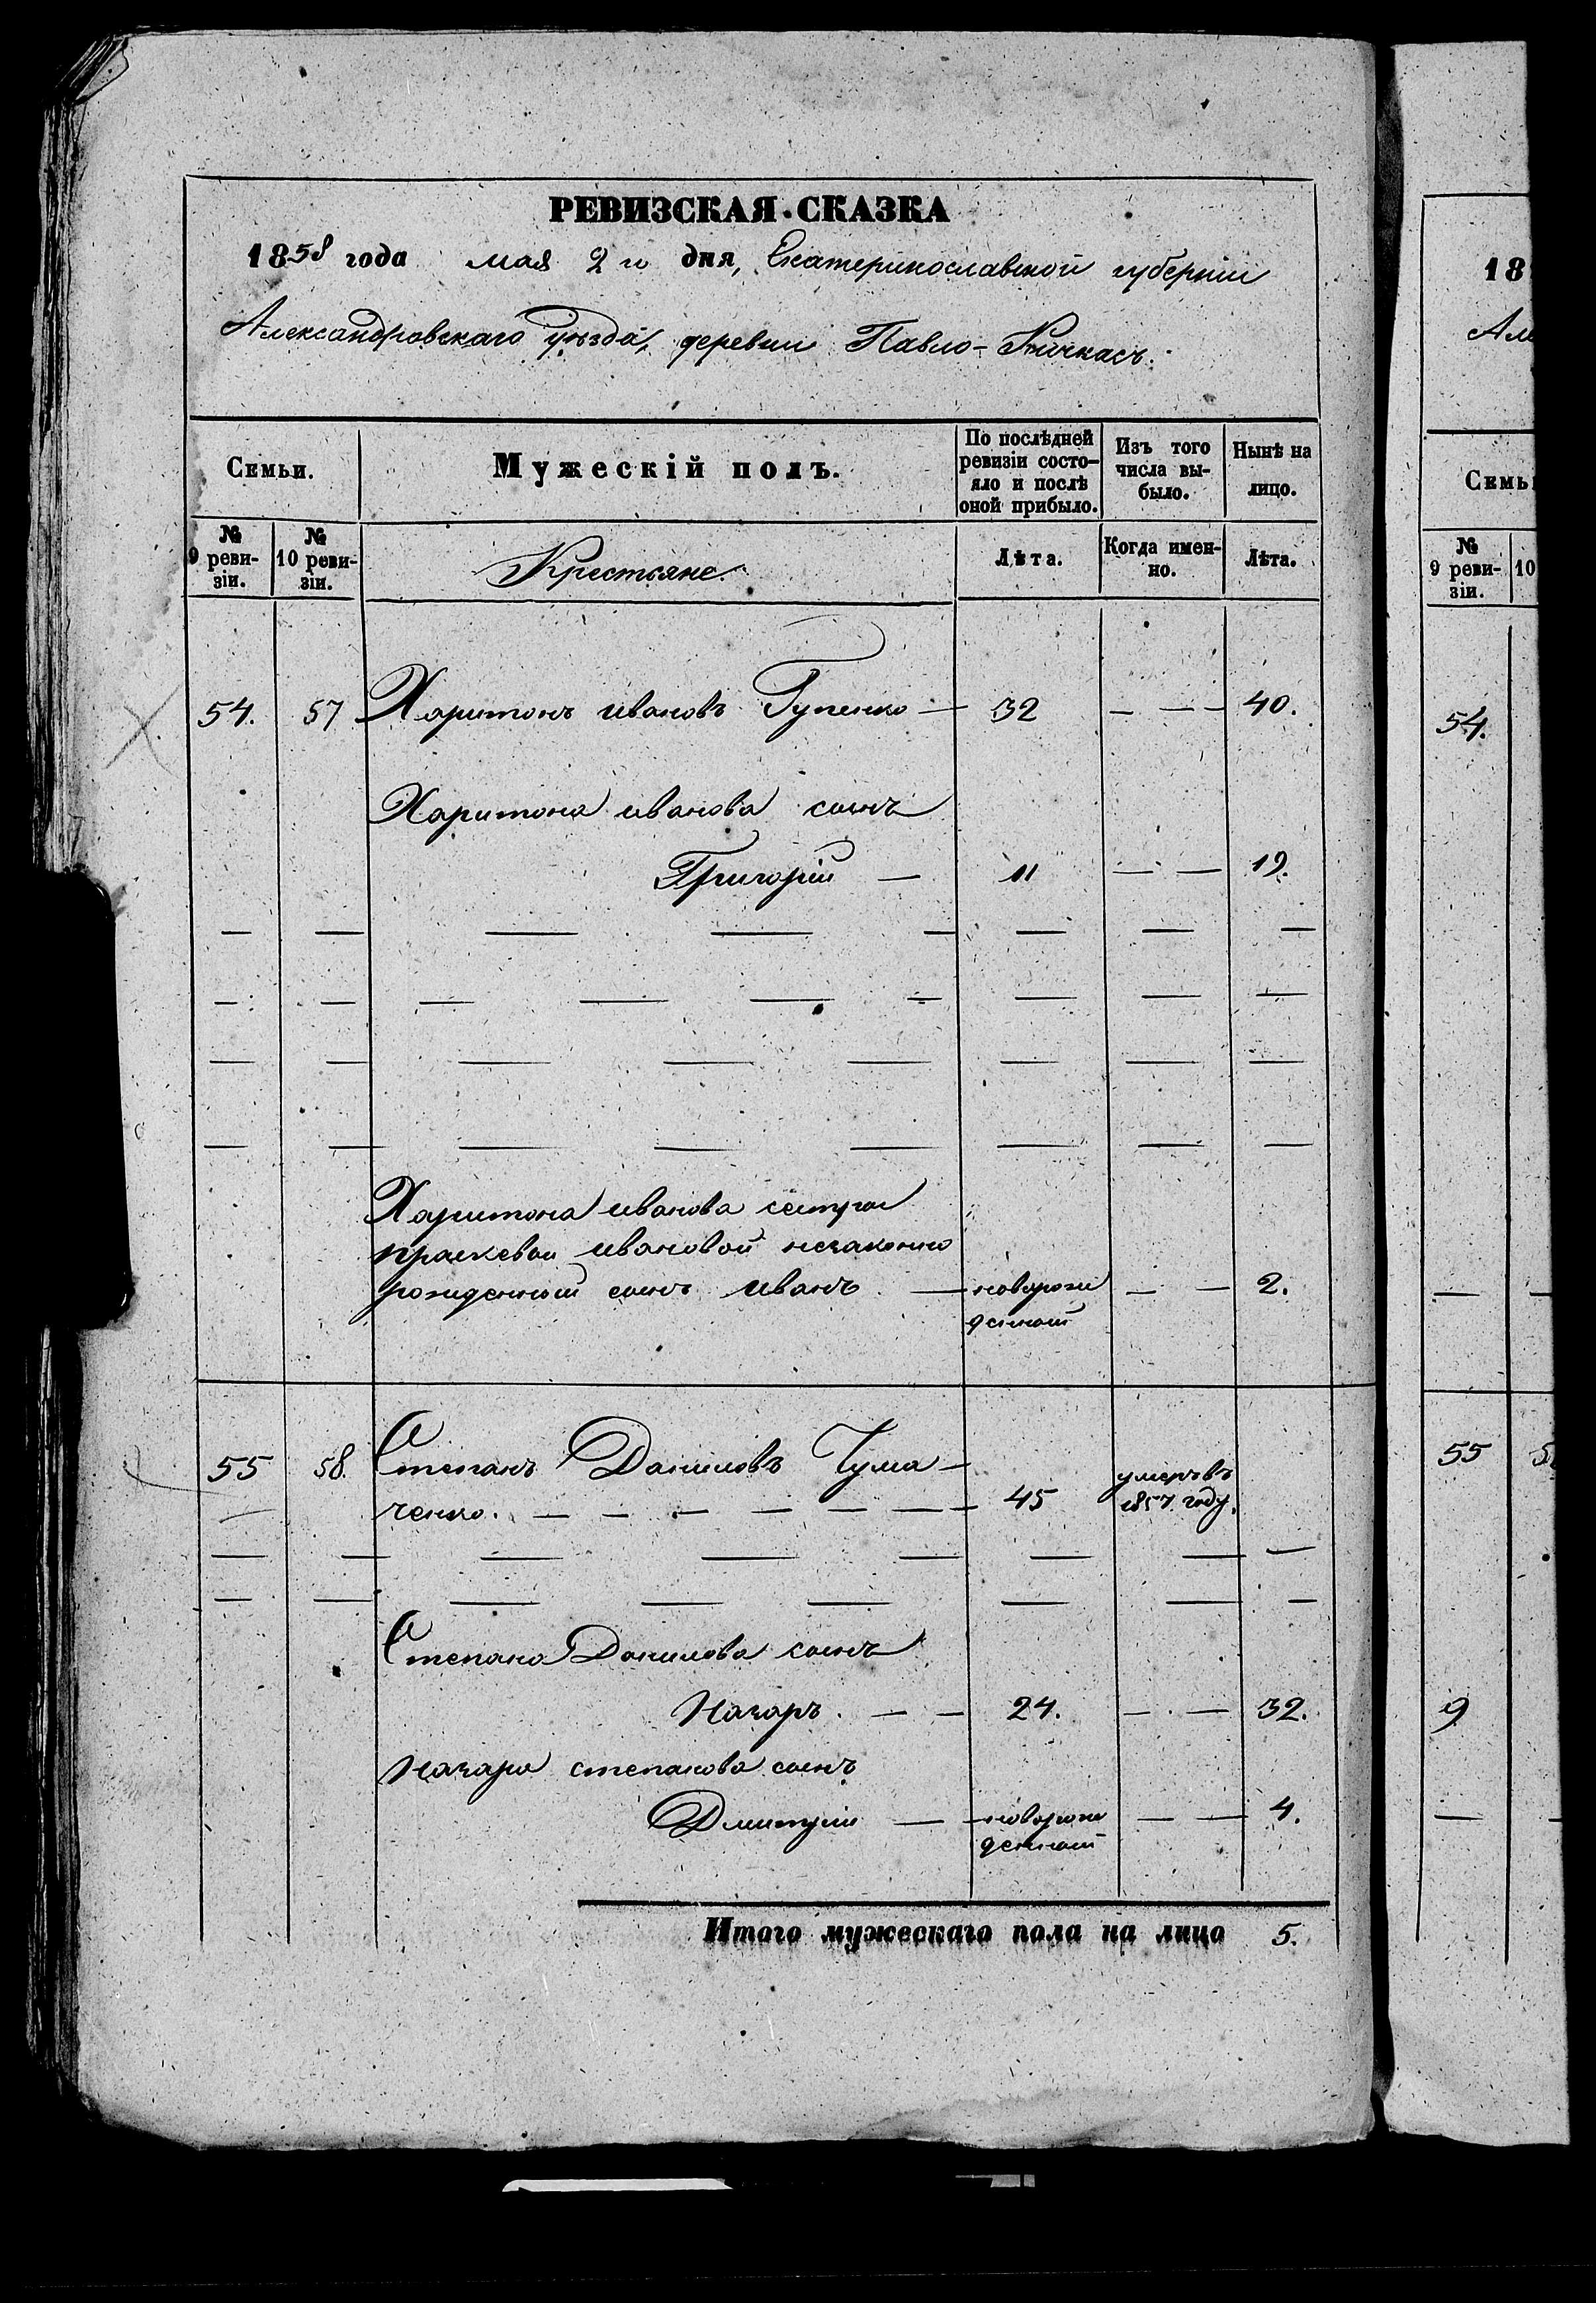 РЕВИЗСКАЯ СКАЗКА
1858 года мая 2 го дня, Екатеринославской губерніи
Александровскаго уѣзда, деревни Павло-Кичкасъ.
Семьи. Мужескій полъ. По послѣдней ревизіи состо- Изъ того числа вы- Нынѣ на
яло и послѣ оной прибыло. было. лицо.
№ 9 реви- зіи. № 10 реви- зіи. Крестьяне. Лѣта. Когда имен- но. Лѣта.
54. 57 Харитонъ ивановъ Гупенко — 32 — — — 40.
Харитона иванова сынъ
Григорій — 11 — — 19.
Харитона иванова сестры
праскевьи ивановой незаконно
рожденный сынъ иванъ — новорож — — 2.
денный
55 58. Степанъ Даниловъ Чума-
ченко. — — — — — — — 45 умеръ въ 1857 году.
Степана Данилова сынъ
Назаръ. — — 24. — — 32.
Назара степанова сынъ
Дмитрій — новорож — — 4.
денный
Итого мужескаго пола на лицо 5.
18
Але
Семьи
№ 9 реви- зіи. 10
54.
55 5
9